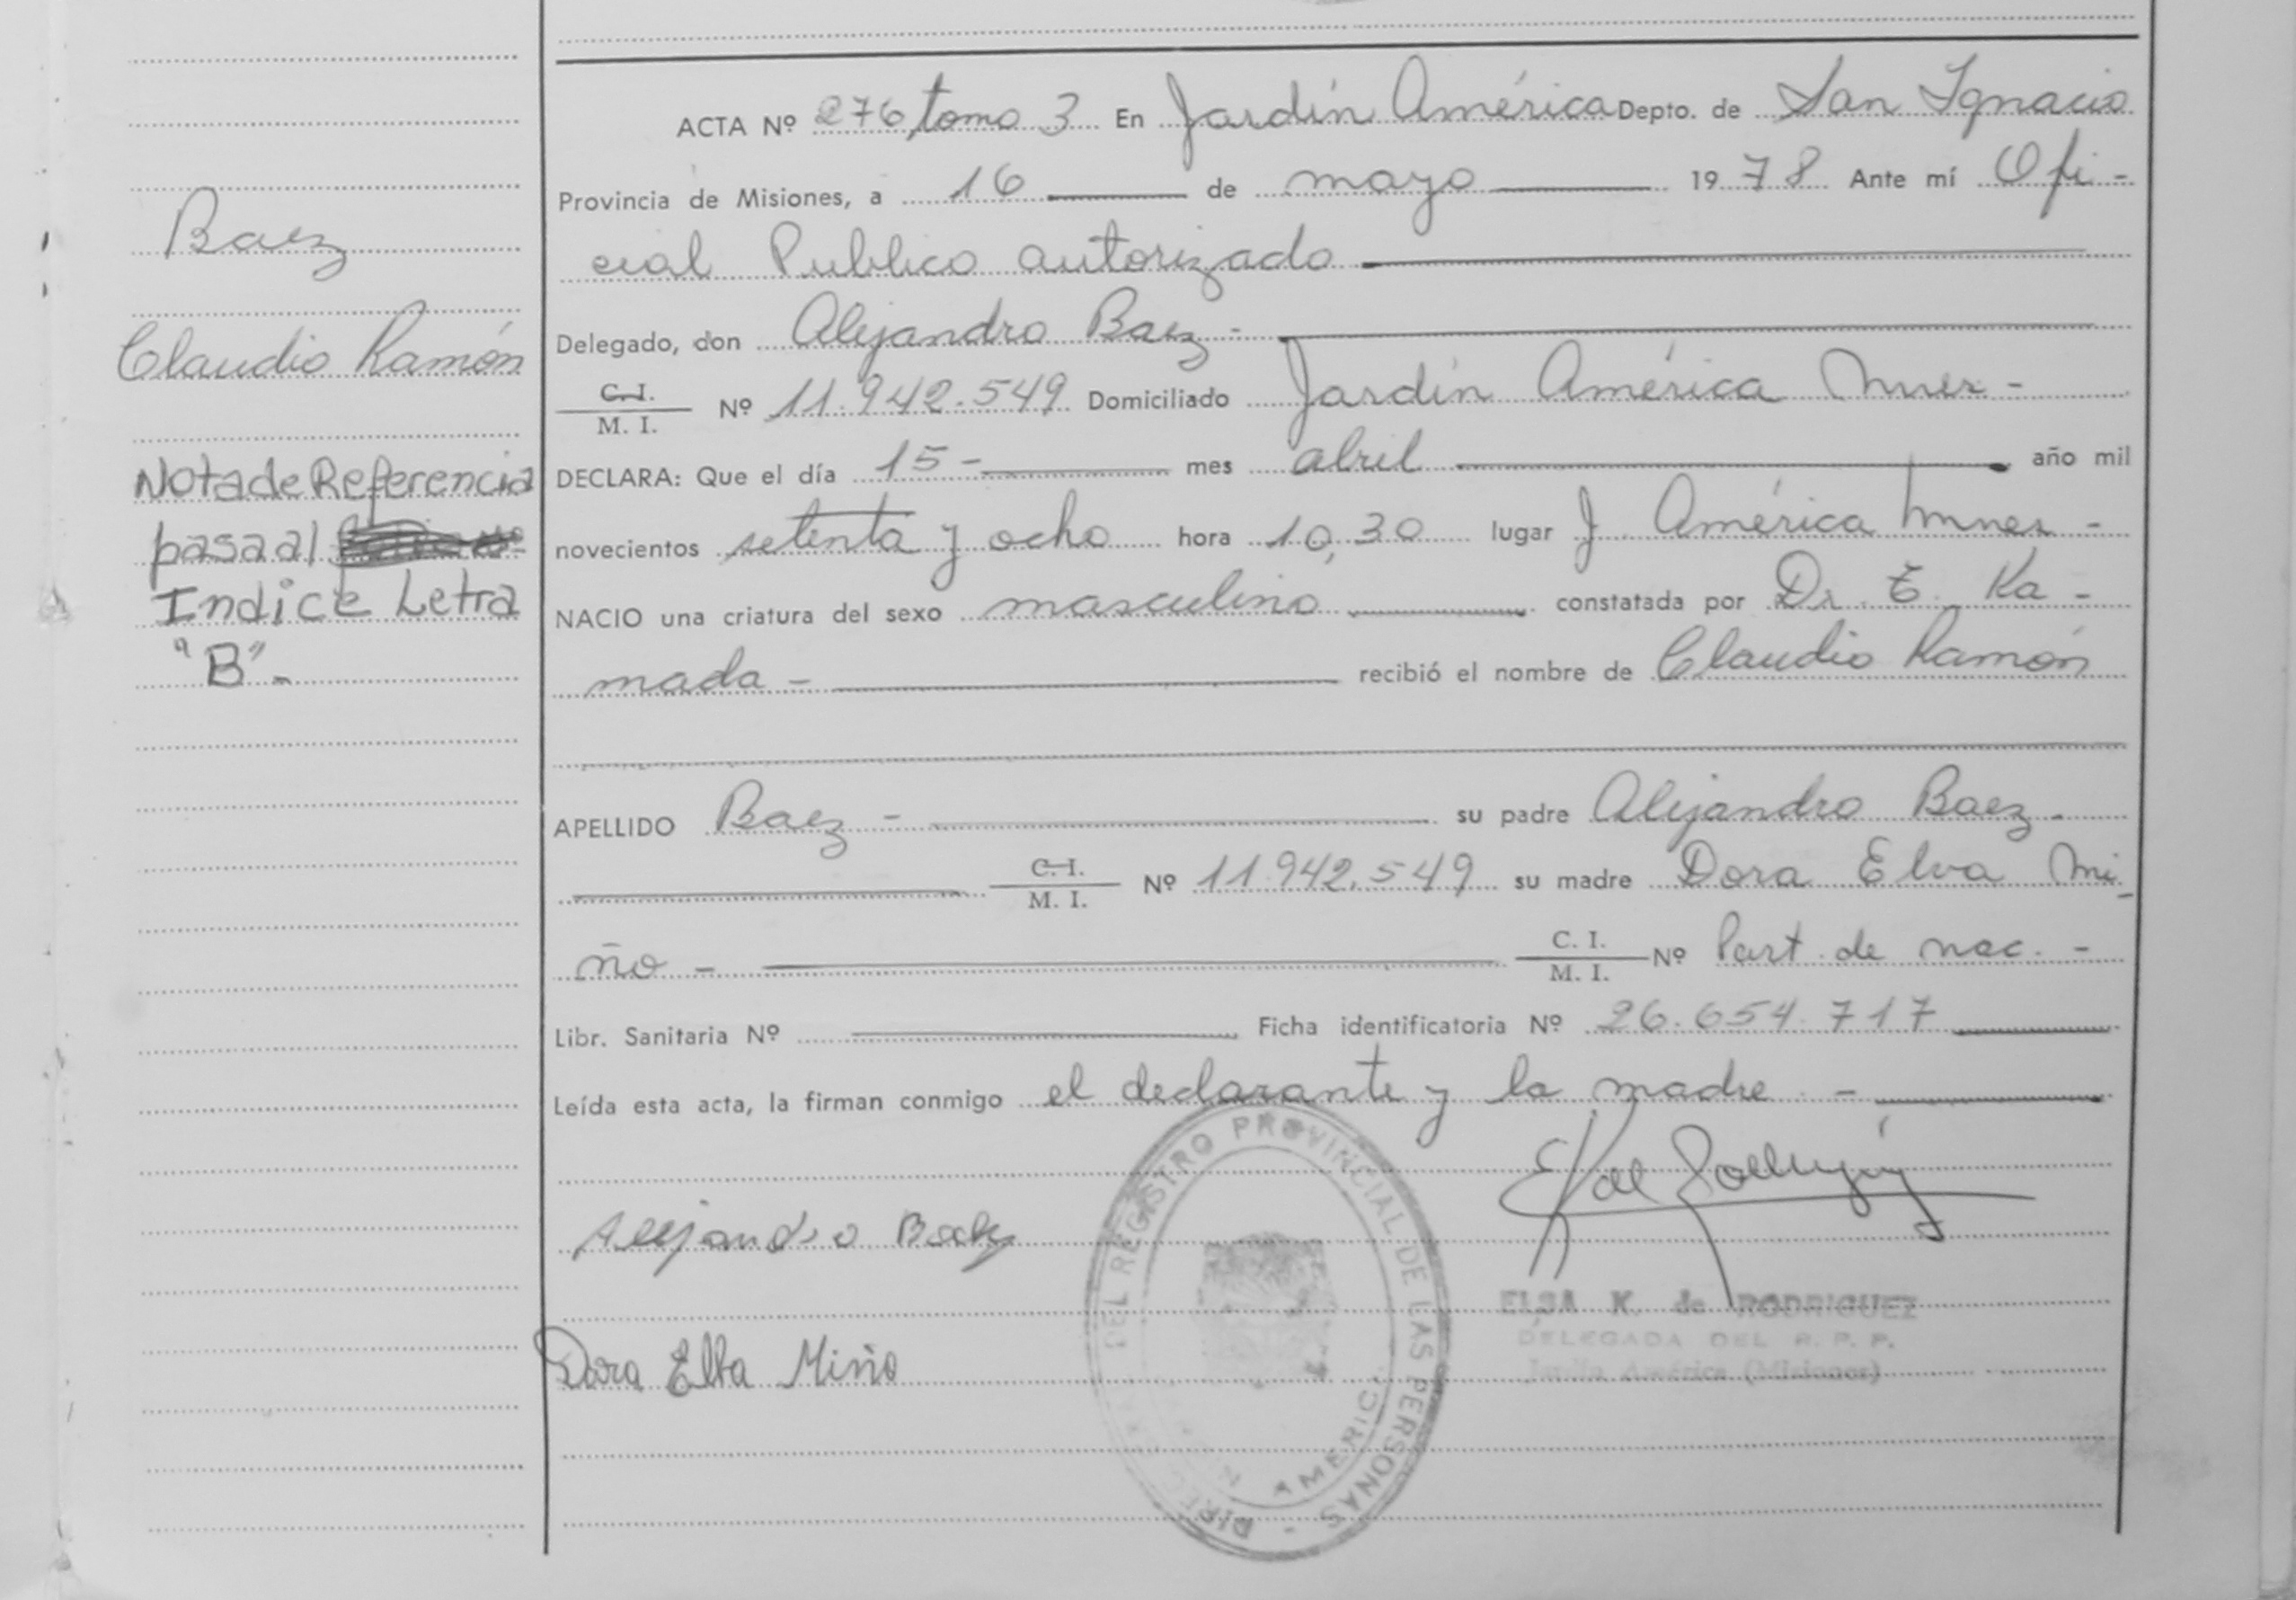 ACTA Nº 276 tomo 3 En Jardín América Depto. de San Ignacio
Provincia de Misiones, a 16 de mayo 1978 Ante mí Ofi-
cial Publico autorizado
Delegado, don Alejandro Baez -
C.I. / M. I. Nº 11.942.549 Domiciliado Jardín América Mnes -
DECLARA: Que el día 15 - mes abril año mil
novecientos setenta y ocho hora 10,30 lugar J. América Mnes -
NACIO una criatura del sexo masculino constatada por Dr. E. Ka -
mada - recibió el nombre de Claudio Ramón
APELLIDO Baez - su padre Alejandro Baez -
C.I. / M. I. Nº 11.942.549 su madre Dora Elva Mi-
ño - C. I. / M. I. Nº Part. de nac. -
Libr. Sanitaria Nº Ficha identificatoria Nº 26.654.717
Leída esta acta, la firman conmigo el declarante y la madre -
Alejandro Baez
Dora Elba Miño
ELSA K. de RODRIGUEZ
DELEGADA DEL R. P. P.
Jardín América (Misiones)
DEL REGISTRO PROVINCIAL DE LAS PERSONAS -
AMERICA
Baez
Claudio Ramón
Nota de Referencia
pasa al
Indice Letra
"B" -